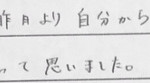 昨月より自分から
って思いました。